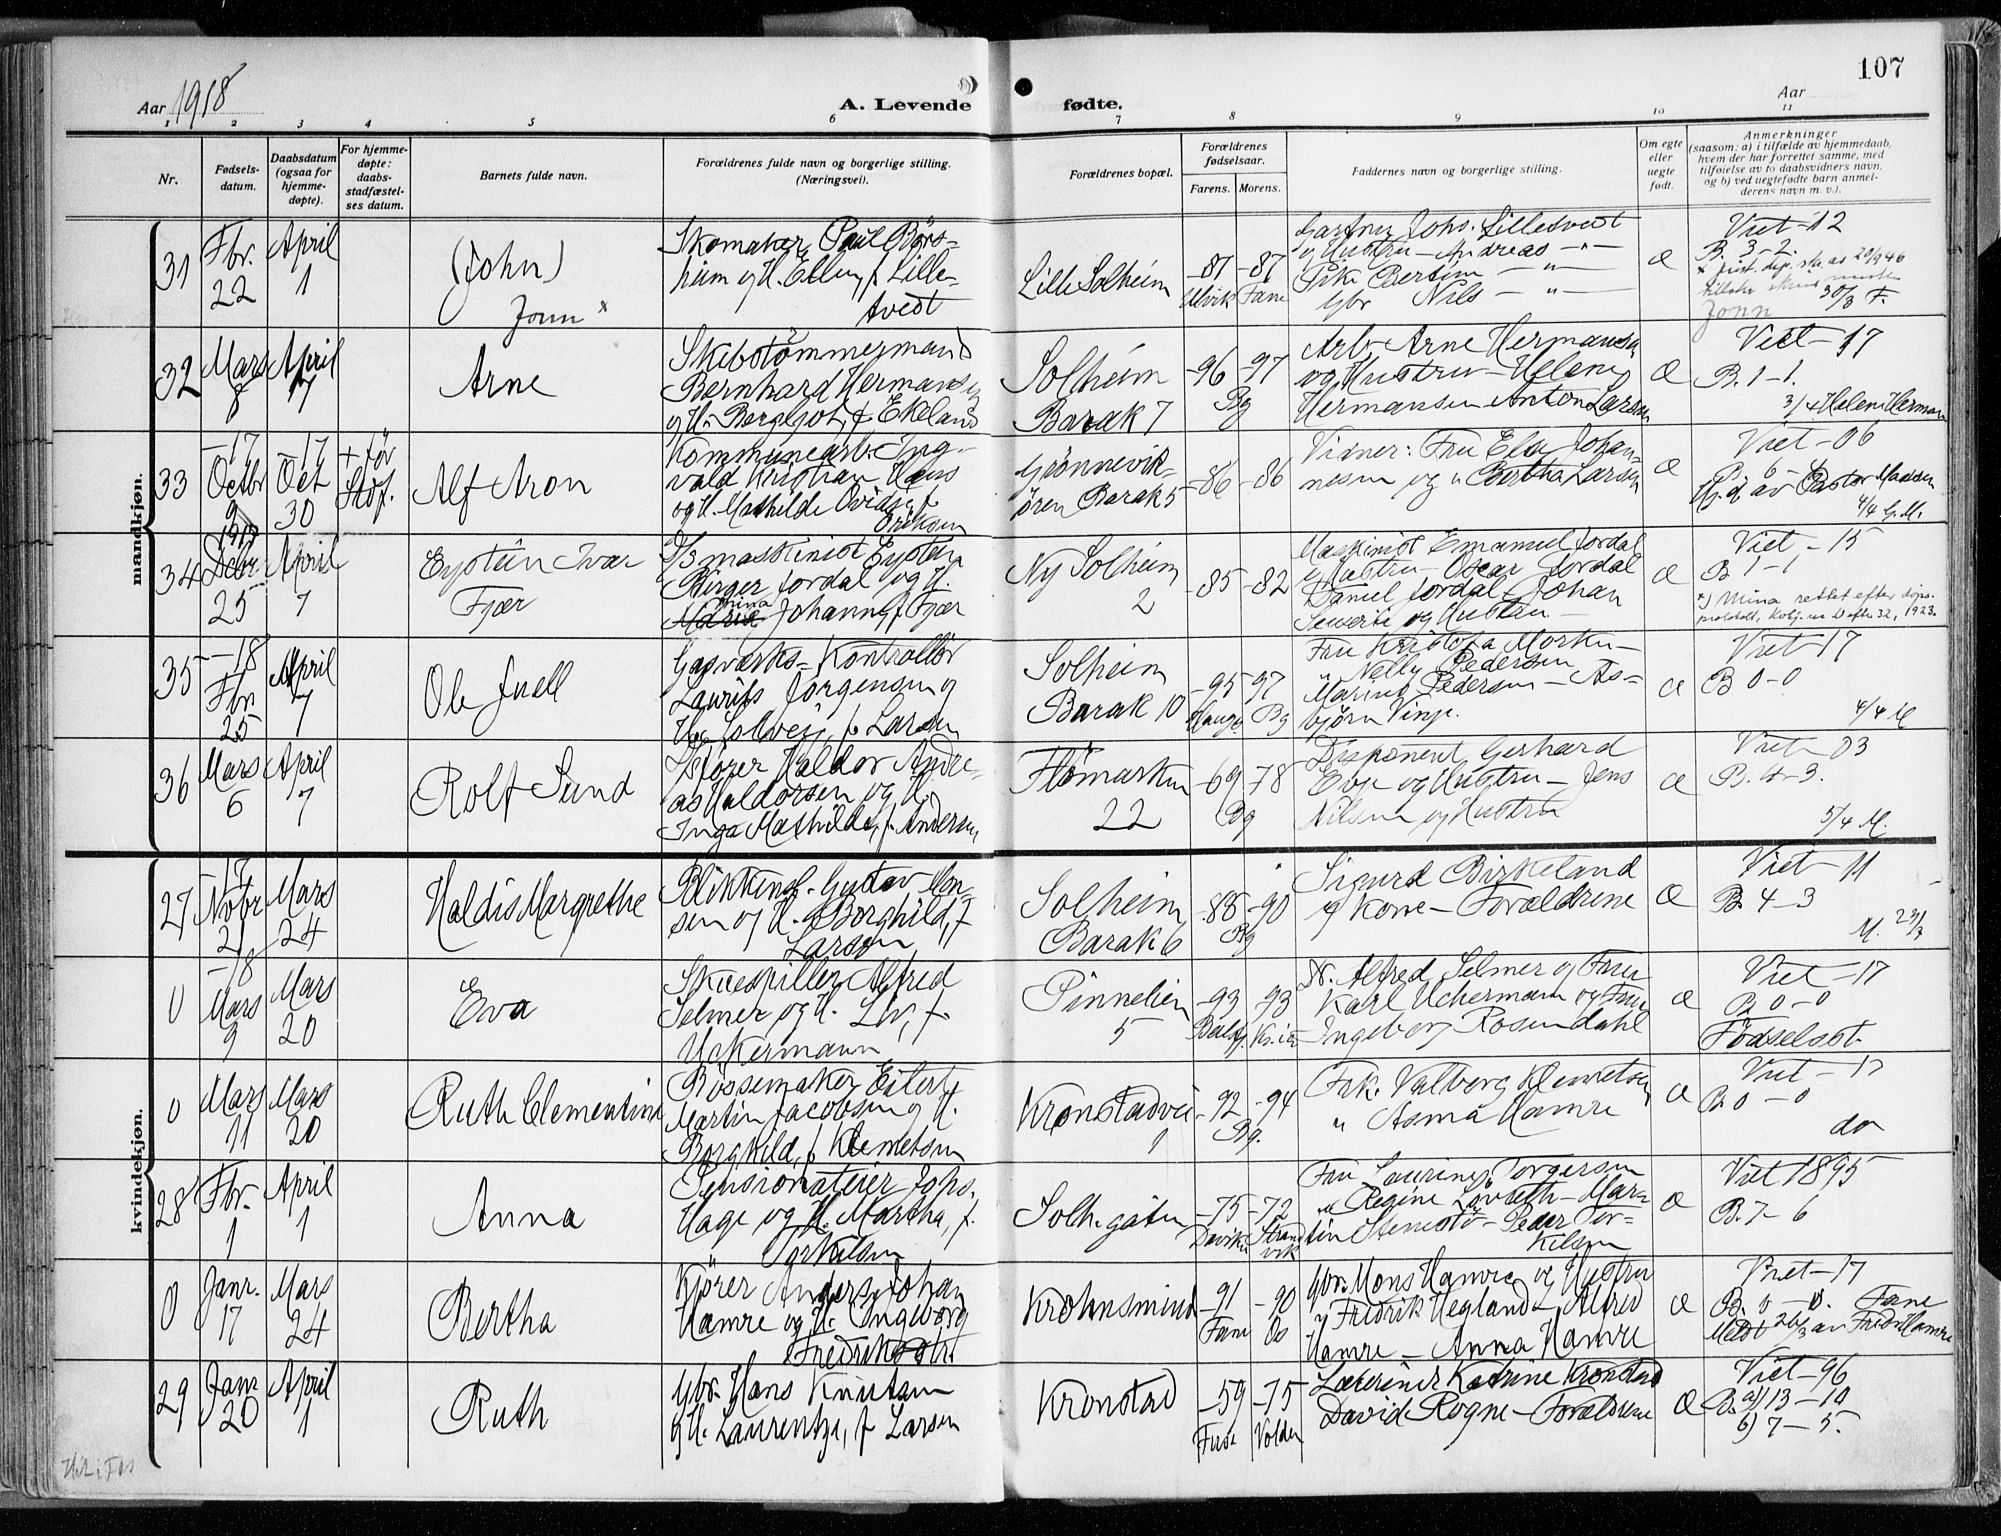 107
Aar 1918
A. Levende fødte.
Aar
1 2 3 4 5 6 7 8 9 10 11
Nr.
Fødsels-
datum.
Daabsdatum
(ogsaa for
hjemme-
døpte).
For hjemme-
døpte:
daabs-
stadfæstel-
ses datum.
Barnets fulde navn.
Forældrenes fulde navn og borgerlige stilling.
(Næringsvei).
Forældrenes bopæl.
Forældrenes
fødselsaar.
Farens. Morens.
Faddernes navn og borgerlige stilling.
Om egte
eller
uegte
født.
Anmerkninger
(saasom: a) i tilfælde av hjemmedaab,
hvem der har forrettet samme, med
tilføielse av to daabsvidners navn,
og b) ved uegtefødte barn anmel-
derens navn m. v.).
mandkjøn.
31
Fbr.
22
April
1
(John)
Jonn x
Skomaker Paul Børs-
heim og H. Ellen, f. Lille-
tvedt
Lille Solheim
-87 -87
Ulvik Fane
Gartner Johs. Lilletvedt
og Hustru - Andreas - " -
Pike Bertine - " -
Gbr Nils - " -
æ
Viet -12
B. 3-2.
30/3 F.
Jonn
32
Mars
8
April
7
Arne
Skibstømmermand
Bernhard Hermansen
og H. Bergljot, f. Ekeland
Solheim
Barak 7
-96 -97
Bg
Arb. Arne Hermansen
og Hustru - Helene
Hermansen Anton Larsen
æ
Viet - 17
B. 1-1.
3/4 Helene Herman
33
-17
Octbr
9
-17
Oct
30
+ før
Stof.
Alf Aron
Kommunearb. Ing-
vald Kristian Hans
og H. Mathilde Ovidse, f.
Eriksen
Grønnevik-
øren Barak 5
-86 -86
Vidner: Fru Ela Johan-
nesen og " Bertha Larsen
æ
Viet - 06
H.d. av Pastor Madsen
4/4 G.M.
34
1917
Decbr
25
April
7
Eystein Ivar
Fjær
D/S maskinist Eystein
Birger Jordal og H.
Mina
Marie Johanne, f. Fjær
Ny Solheim
2
-85 -82
Maskinist Emanuel Jordal
og Hustru - Oscar Jordal
Daniel Jordal - Johan
Severin og Hustru -
æ
Viet - 15
B 1-1
x) Mina rettet efter dåps-
protokoll, 1923.
35
-18
Fbr
25
April
7
Ole Juell
Gasværks-Kontrollør
Laurits Jørgensen og
H. Solveig, f. Larsen
Solheim
Barak 10
-95 -97
Hauge Bg
Fru Kristofa Morken -
" Nelly Pedersen
Marius Pedersen - As-
bjørn Vinje.
æ
Viet 17
B 0-0
4/4 M
36
Mars
6
April
7
Rolf Sund
Haldor Andre-
as Haldorsen og H.
Inga Mathilde, f. Andersen
Flømarken
22
-69 -78
Bg
Disponent Gerhard
Evje og Hustru - Jens
Nilsen og Hustru
æ
Viet - 03
B. 4-3.
5/4 M.
kvindekjøn.
27
17
Novbr
21
Mars
24
Haldis Margrethe
Blikkensl. Gustav Mon-
sen og H. Borghild, f.
Larsen
Solheim
Barak 6
-88 -90
Bg
Sigurd Birkeland
og Kone - Forældrene
æ
Viet - 11
B. 4-3
M. 23/3
0
-18
Mars
9
Mars
20
Eva
Skuespiller Alfred
Selmer og H. Liv, f.
Uckermann
Pinnelien
5
-93 -93
Kr.ia
Dr. Alfred Selmer og Frue
Karl Uchermann og Frue
Ingeborg Rosendahl
æ
Viet - 17
B 0-0
Fødselsst.
0
Mars
11
Mars
20
Ruth Clementine
Bøssemaker Eilert
Martin Jacobsen og H.
Borghild, f. Klemetsen
Kronstadvei
9
-92 -94
Bg.
Frk. Valborg Klemetsen
" Asma Hamre
æ
Viet - 17
B. 0-0
do
28
Fbr.
1
April
1
Anna
Pensionateier Johs.
Hage og H. Martha, f.
Torkilsen
Solh. gaten
-75 -72
Daviken Strandvik
Fru Laurine Torgersen
" Regine Lovseth - Mar-
tin Stenestø - Peder Tor-
kilsen
æ
Viet 1895
B. 7-6
0
Janr.
17
Mars
24
Bertha
Kjører Anders Johan
Hamre og H. Ingeborg
Fredrikke
Krohnsminde
-91 -90
Fane Os
Gbr. Mons Hamre og Hustru
" Fredrik Hegland - Alfred
Hamre - Anna Hamre
æ
Viet - 17
B. 0-0. Fane
Meldt 26/3 av Fredr Hamre
29
Janr
20
April
1
Ruth
Gbr. Hans Knutsen
og H. Laurentze, f. Larsen
Kronstad
-59 -75
Fuse Volden
Lærerinde Katrine Kronstad
David Rogne - Forældrene
æ
Viet - 96
B. a) 13-10
b) 7-5.